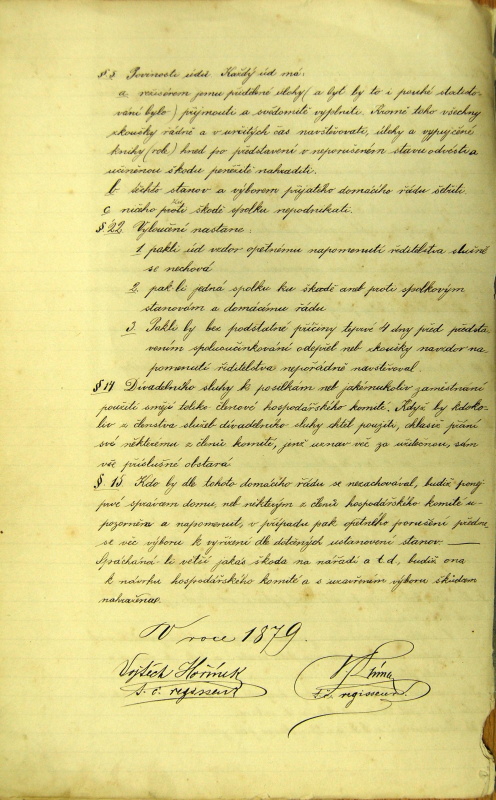 § 8. Povinosti údů. Každý úd má:
a. režisérem jemu přidělené úlohy (a byť by to i pouhé statisto-
vání bylo) přijmouti a svědomitě vyplniti. Kromě toho všechny
zkoušky řádně a v určitých čas navštěvovati, úlohy a vypujčené
knihy (role) hned po představení v neporušeném stavu odvésti a
učiněnou škodu peněžitě nahraditi.
b. těchto stanov a výborem přijatého domácího řádu šetřiti.
c. ničeho proti škodě spolku nepodnikati.
§ 22. Vyloučení nastane:
1. pakli úd vzdor opětnému napomenutí ředitelstva slušně
se nechová
2. pakli jedná spolku ku škodě aneb proti spolkovým
stanovám a domácímu řádu.
3. Pakli by bez podstatné příčiny teprve 4 dny před předsta-
vením spoluoučinkování odepřel neb zkoušky navzdor na-
pomenutí ředitelstva nepořádně navštěvoval
§ 14. Divadelního sluhy k posílkám neb jakémukoliv zaměstnání
použíti smějí toliko členové hospodářského komité. Když by kdoko-
liv z členstva služeb divadelního sluhy chtěl použíti, ohlasiž přání
své některému z členů komité, jenž uznav věc za užitečnou, sám
věc příslušně obstará.
§ 15. Kdo by dle tohoto domácího řádu se nezachovával, budiž ponej-
prvé správcem domu, neb některým z členů hospodářského komité u-
pozorněn a napomenut, v případu pak opětného porušení předne-
se věc výboru k vyřízení dle dotčených ustanovení stanov. —
Spáchána-li větší jakás škoda na nářadí a t.d., budiž ona
k návrhu hospodářského komité a s uzavřením výboru škůdcem
nahražena.
V roce 1879.
Vojtěch Hořínek
t. č. regisseur
Fr. regisseur.